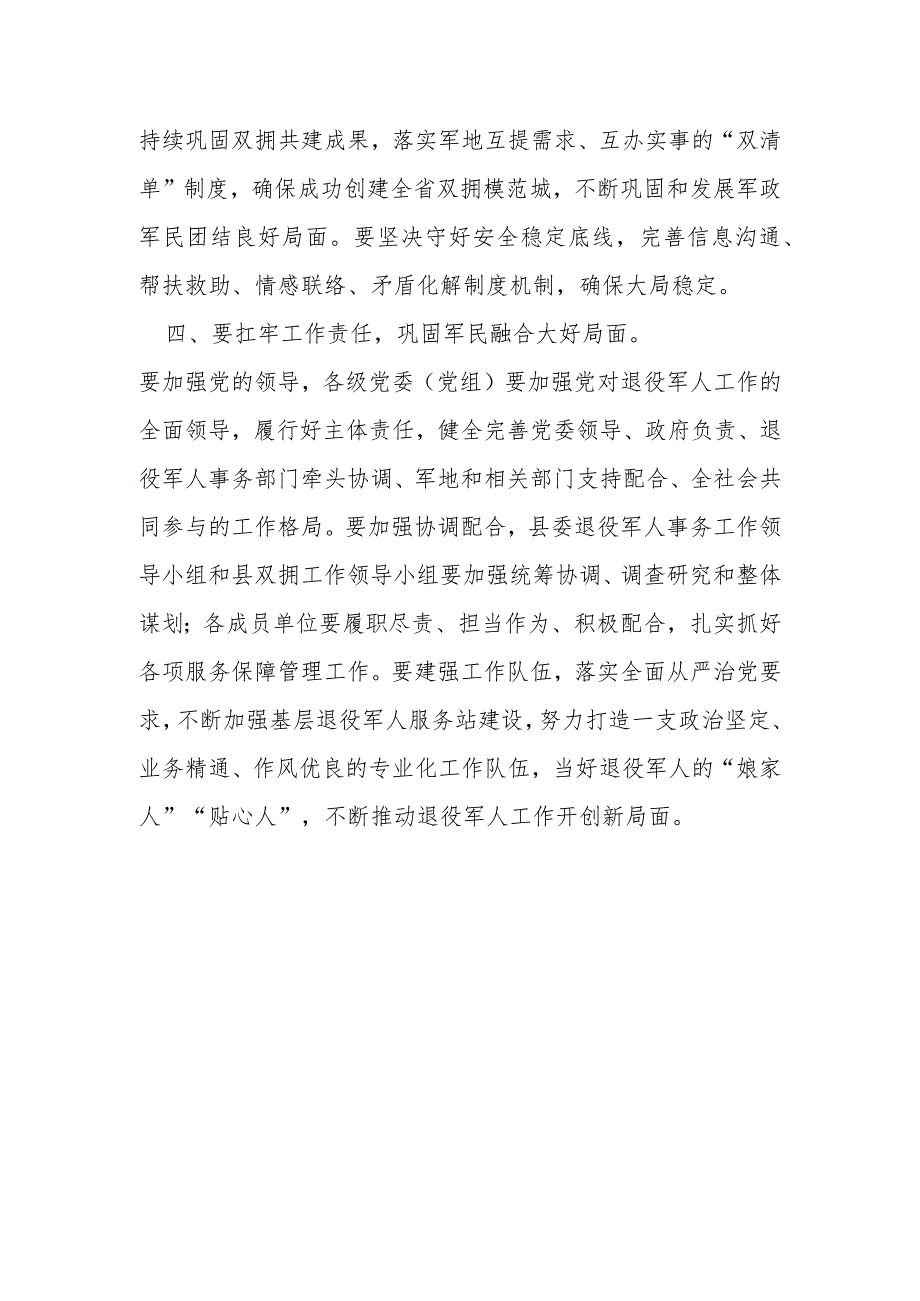 持续巩固双拥共建成果，落实军地互提需求、互办实事的“双清
单”制度，确保成功创建全省双拥模范城，不断巩固和发展军政
军民团结良好局面。要坚决守好安全稳定底线，完善信息沟通、
帮扶救助、情感联络、矛盾化解制度机制，确保大局稳定。
四、要扛牢工作责任，巩固军民融合大好局面。
要加强党的领导，各级党委（党组）要加强党对退役军人工作的
全面领导，履行好主体责任，健全完善党委领导、政府负责、退
役军人事务部门牵头协调、军地和相关部门支持配合、全社会共
同参与的工作格局。要加强协调配合，县委退役军人事务工作领
导小组和县双拥工作领导小组要加强统筹协调、调查研究和整体
谋划；各成员单位要履职尽责、担当作为、积极配合，扎实抓好
各项服务保障管理工作。要建强工作队伍，落实全面从严治党要
求，不断加强基层退役军人服务站建设，努力打造一支政治坚定、
业务精通、作风优良的专业化工作队伍，当好退役军人的“娘家
人”“贴心人”，不断推动退役军人工作开创新局面。